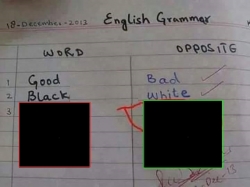 18-December-2013 English Grammar
WORD OPPOSITE
1 Good Bad
2 Black White
3